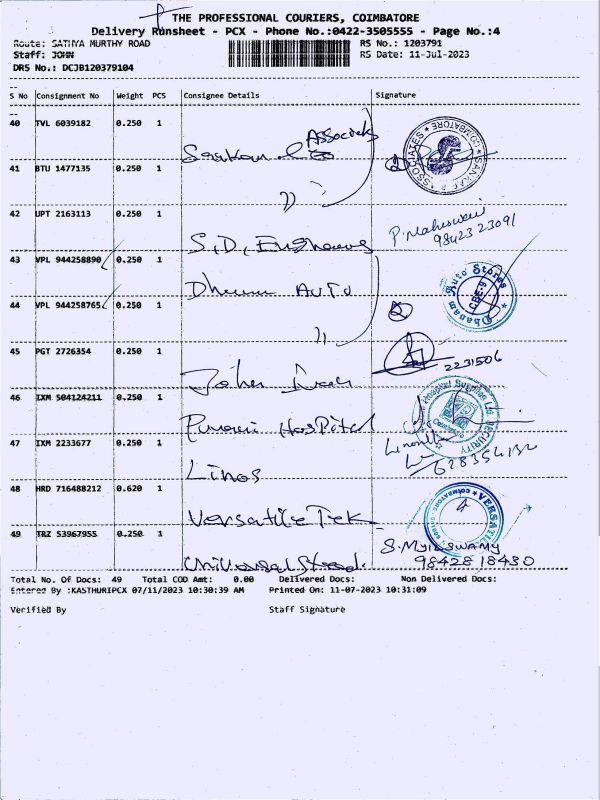 THE PROFESSIONAL COURIERS, COIMBATORE
Delivery Runsheet - PCX - Phone No.:0422-3505555 - Page No.:4
Route: SATHYA MURTHY ROAD RS No.: 1203791
Staff: JOHN RS Date: 11-Jul-2023
DRS No.: DCJB120379104
S No Consignment No Weight PCS Consignee Details Signature
Associates
40 TVL 6039182 0.250 1
41 BTU 1477135 0.250 1
42 UPT 2163113 0.250 1
P. Maheswari
S.D. Engineers 98423 23091
43 VPL 944258890 0.250 1
Auto Stores
CBE-9
Dhanam
Dhanam Auto
44 VPL 944258765 0.250 1
45 PGT 2726354 0.250 1
2231506
46 IXM 504124211 0.250 1
Hospital
SECURITY
47 IXM 2233677 0.250 1
Linos
48 HRD 716488212 0.620 1
Versatile Tek
49 TRZ 53967955 0.250 1
S. Myilswamy
98428 18430
Total No. Of Docs: 49 Total COD Amt: 0.00 Delivered Docs: Non Delivered Docs:
Entered By :KASTHURIPCX 07/11/2023 10:30:39 AM Printed On: 11-07-2023 10:31:09
Verified By Staff Signature